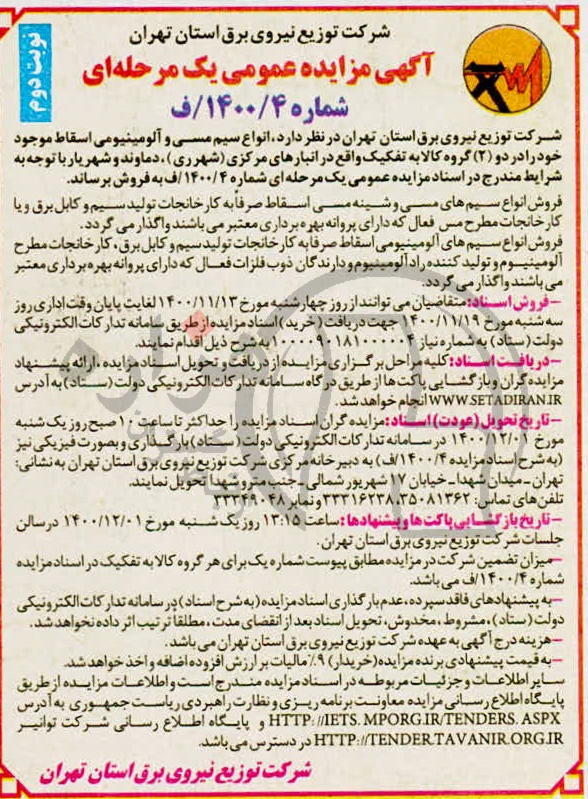 شرکت توزیع نیروی برق استان تهران
نوبت دوم
آگهی مزایده عمومی یک مرحله‌ای
شماره ۱۴۰۰/۴/ف
شرکت توزیع نیروی برق استان تهران در نظر دارد، انواع سیم مسی و آلومینیومی اسقاط موجود
خود را در دو (۲) گروه کالا به تفکیک واقع در انبارهای مرکزی (شهرری)، دماوند و شهریار با توجه به
شرایط مندرج در اسناد مزایده عمومی یک مرحله‌ای شماره ۱۴۰۰/۴/ف به فروش برساند.
فروش انواع سیم های مسی و شینه مسی اسقاط صرفاً به کارخانجات تولید سیم و کابل برق و یا
کارخانجات مطرح مس فعال که دارای پروانه بهره برداری معتبر می باشند واگذار می گردد.
فروش انواع سیم های آلومینیومی اسقاط صرفاً به کارخانجات تولید سیم و کابل برق، کارخانجات مطرح
آلومینیوم و تولید کننده راد آلومینیوم و دارندگان ذوب فلزات فعال که دارای پروانه بهره برداری معتبر
می باشند واگذار می گردد.
–فروش اسناد: متقاضیان می توانند از روز چهارشنبه مورخ ۱۴۰۰/۱۱/۱۳ لغایت پایان وقت اداری روز
سه شنبه مورخ ۱۴۰۰/۱۱/۱۹ جهت دریافت (خرید) اسناد مزایده از طریق سامانه تدارکات الکترونیکی
دولت (ستاد) به شماره نیاز ۱۰۰۰۰۹۰۱۸۱۰۰۰۰۰۴ به شرح ذیل اقدام نمایند.
–دریافت اسناد: کلیه مراحل برگزاری مزایده از دریافت و تحویل اسناد مزایده، ارائه پیشنهاد
مزایده گران و بازگشایی پاکت ها از طریق درگاه سامانه تدارکات الکترونیکی دولت (ستاد) به آدرس
WWW.SETADIRAN.IR انجام خواهد شد.
–تاریخ تحویل (عودت) اسناد: مزایده گران اسناد مزایده را حداکثر تا ساعت ۱۰ صبح روز یک شنبه
مورخ ۱۴۰۰/۱۲/۰۱ در سامانه تدارکات الکترونیکی دولت (ستاد) بارگذاری و بصورت فیزیکی نیز
(به شرح اسناد مزایده ۱۴۰۰/۴/ف) به دبیرخانه مرکزی شرکت توزیع نیروی برق استان تهران به نشانی:
تهران - میدان شهدا - خیابان ۱۷ شهریور شمالی - جنب مترو شهدا تحویل نمایند.
تلفن های تماس: ۳۵۰۸۱۳۶۲، ۳۳۳۱۶۲۳۸ و نمابر ۳۳۳۴۹۰۴۸
–تاریخ بازگشایی پاکت ها و پیشنهادها: ساعت ۱۳:۱۵ روز یک شنبه مورخ ۱۴۰۰/۱۲/۰۱ در سالن
جلسات شرکت توزیع نیروی برق استان تهران.
–میزان تضمین شرکت در مزایده مطابق پیوست شماره یک برای هر گروه کالا به تفکیک در اسناد مزایده
شماره ۱۴۰۰/۴/ف می باشد.
–به پیشنهادهای فاقد سپرده، عدم بارگذاری اسناد مزایده (به شرح اسناد) در سامانه تدارکات الکترونیکی
دولت (ستاد)، مشروط، مخدوش، تحویل اسناد بعد از انقضای مدت، مطلقاً ترتیب اثر داده نخواهد شد.
–هزینه درج آگهی به عهده شرکت توزیع نیروی برق استان تهران می باشد.
–به قیمت پیشنهادی برنده مزایده (خریدار) ۹٪ مالیات بر ارزش افزوده اضافه و اخذ خواهد شد.
سایر اطلاعات و جزئیات مربوطه در اسناد مزایده مندرج است و اطلاعات مزایده از طریق
پایگاه اطلاع رسانی مزایده معاونت برنامه ریزی و نظارت راهبردی ریاست جمهوری به آدرس
HTTP://IETS.MPORG.IR/TENDERS.ASPX و پایگاه اطلاع رسانی شرکت توانیر
HTTP://TENDER.TAVANIR.ORG.IR در دسترس می باشد.
شرکت توزیع نیروی برق استان تهران